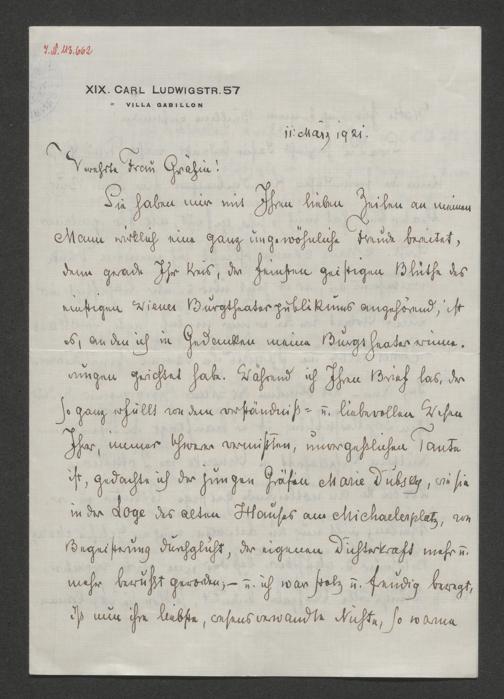 J.N. 113.662
XIX. CARL LUDWIGSTR. 57
" VILLA GABILLON
11. März 1921.
Verehrte Frau Gräfin!
Sie haben mir mit Ihren lieben Zeilen an meinen
Mann wirklich eine ganz ungewöhnliche Freude bereitet,
denn gerade Ihr Kreis, der feinsten geistigen Blüthe des
einstigen Wiener Burgtheaterpublikums angehörend, ist
es, an den ich in Gedanken meine Burgtheatererinne-
rungen gerichtet habe. Während ich Ihren Brief las, der
so ganz erfüllt von dem verständniß- u. liebevollen Wesen
Ihrer, immer schwer vermißten, unvergeßlichen Tante
ist, gedachte ich der jungen Gräfin Marie Dubsky, wie sie
in der Loge des alten Hauses am Michaelerplatz, von
Begeisterung durchglüht, der eigenen Dichterkraft mehr u.
mehr bewußt geworden; – u. ich war stolz u. freudig bewegt,
ist nun ihre liebste, wesensverwandte Nichte, so warme